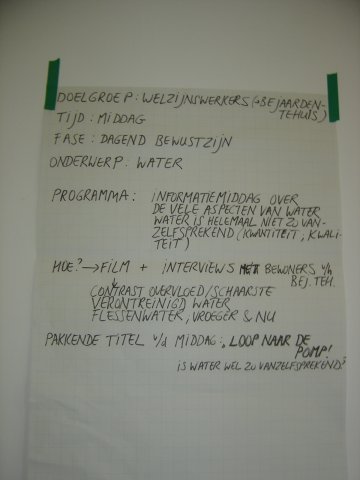 DOELGROEP: WELZIJNSWERKERS (→BEJAARDEN-
TEHUIS)
TIJD: MIDDAG
FASE: DAGEND BEWUSTZIJN
ONDERWERP: WATER
PROGRAMMA: INFORMATIEMIDDAG OVER
DE VELE ASPECTEN VAN WATER
WATER IS HELEMAAL NIET ZO VAN-
ZELFSPREKEND (KWANTITEIT, KWALI-
TEIT)
HOE? → FILM + INTERVIEWS MET BEWONERS v/h
BEJ. TEH.
CONTRAST OVERVLOED/SCHAARSTE
VERONTREINIGD WATER
FLESSENWATER, VROEGER & NU
PAKKENDE TITEL v/d MIDDAG: "LOOP NAAR DE
POMP!
IS WATER WEL ZO VANZELFSPREKEND?